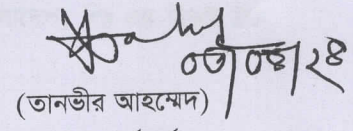 ০৩/০৪/২৪
(তানভীর আহম্মেদ)